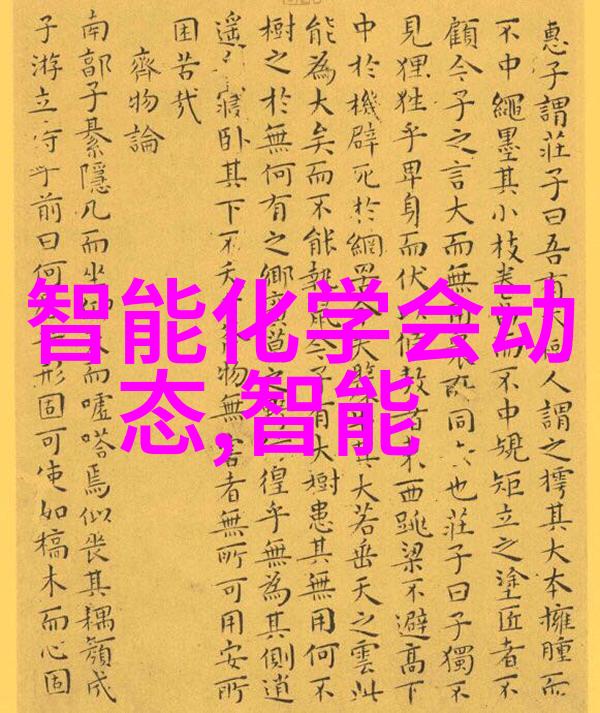 惠子謂莊子曰吾有大人謂之樗其大本擁腫而
不中繩墨其小枝而不中規矩立之塗匠者不
顧今子之言大而無同也莊子曰子獨不
見狸狌乎卑身而伏候敖者西跳梁不避高下
中於機辟死於網罟今夫其大若垂天之雲此
能為大矣而不能執鼠今子有大樹患其無用何不
樹之於無何有之鄉之徨乎無為其側逍
遙寢卧其下不夭物無害者無所可用安所
困苦哉
齊物論
南郭子綦隱几而坐而噓嗒焉似喪其耦顏成
子游立侍乎前曰何形固可使如槁木而心固
智能化学会动
态,智能